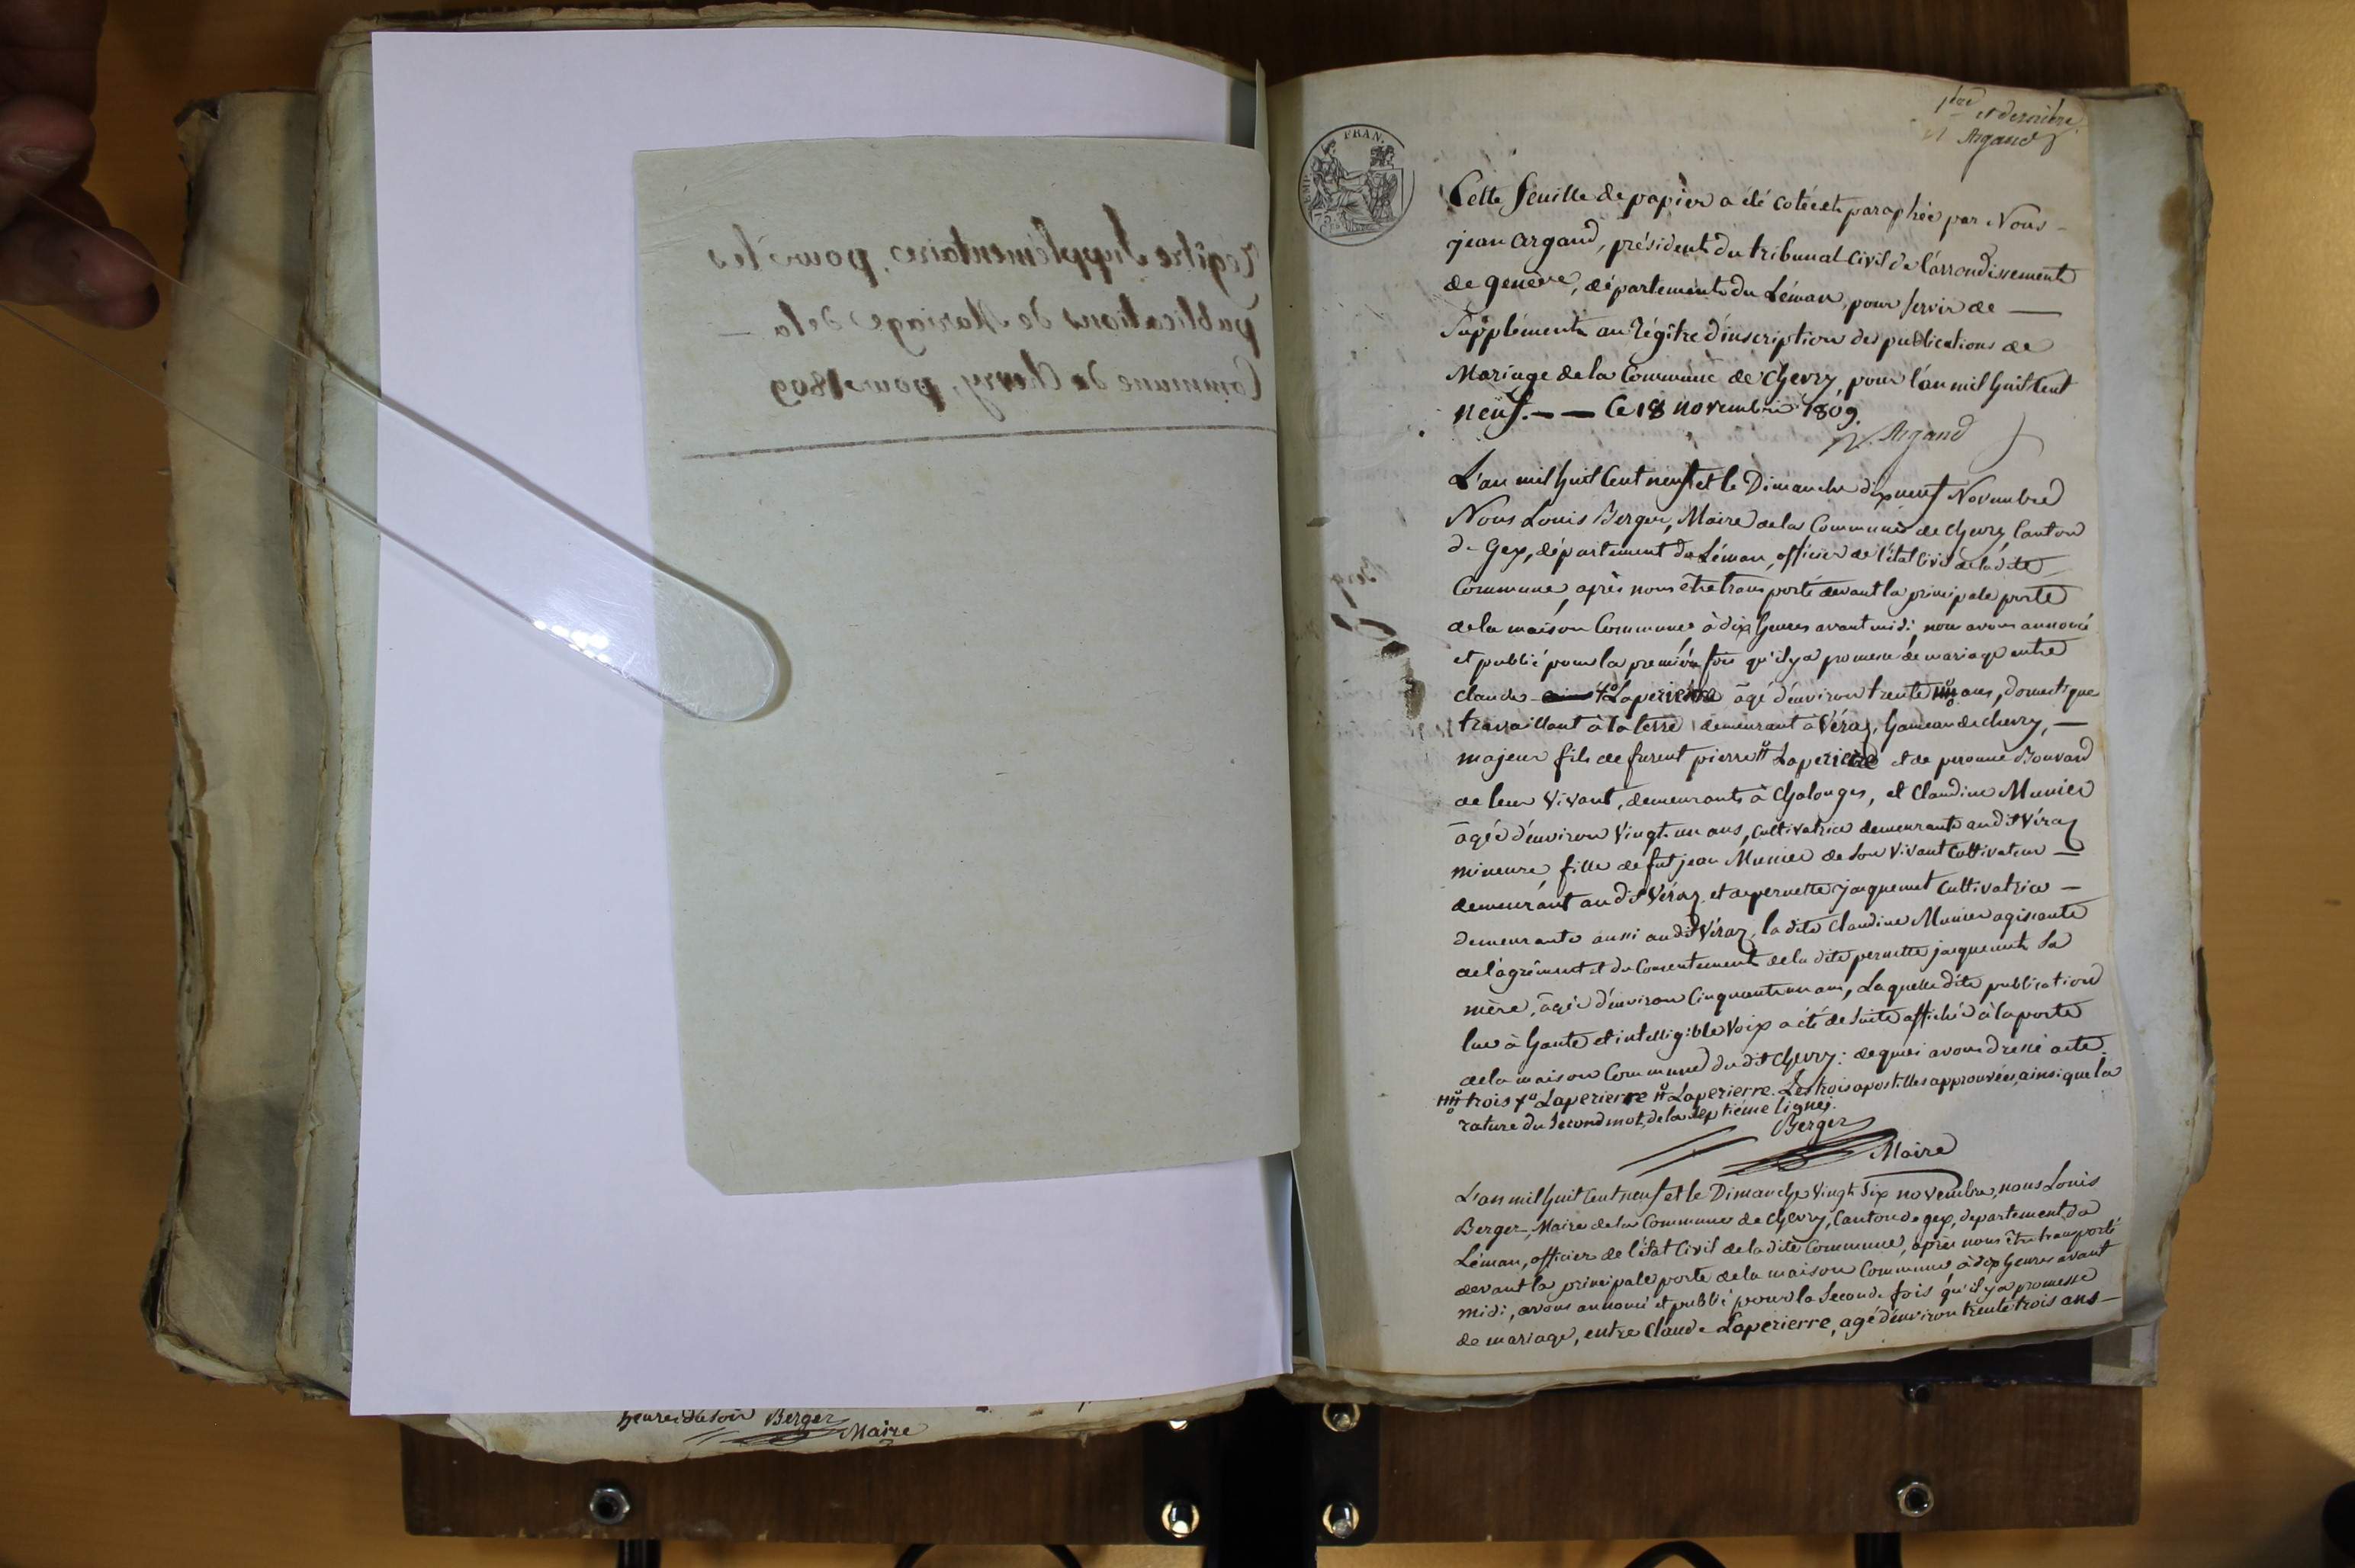 Régître Supplémentaire, pour les
publications de Mariage de la —
Commune de Chevry, pour 1809
heures du soir Berger
Maire
1ère et dernière
Argand
EMP. FRAN.
75
Cette feuille de papier a été cotée et paraphée par Nous —
jean argand, président du tribunal Civil de l'arrondissement
de genève, département du Léman, pour servir de —
Supplément au Régître d'inscription des publications de
Mariage de la Commune de Chevry, pour l'an mil huit Cent
neuf. — — Ce 18 novembre 1809.
Argand
L'an mil huit Cent neuf et le Dimanche dix neuf Novembre
Nous Louis Berger, Maire de la Commune de Chevry, Canton
de Gex, département du Léman, officier de l'état Civil de la dite —
Commune, après nous être transporté devant la principale porte
de la maison Commune à dix heures avant midi, nous avons annoncé
et publié pour la première fois qu'il y a promesse de mariage entre
claude Laperierre âgé d'environ trente ans, domestique
travaillant à la terre demeurant à Véraz, hameau de chevry, —
majeur fils de furent pierre Laperierre et de peronne Bouvard
de leur vivant, demeurants à Chalonges, et Claudine Munier
âgée d'environ Vingt un ans, Cultivatrice demeurante audit Véraz
mineure, fille de fut jean Munier de son Vivant Cultivateur —
demeurant audit Véraz, et de pernette jaquemet Cultivatrice —
demeurante aussi audit Véraz, la dite Claudine Munier agissante
de l'agrément et du Consentement de la dite pernette jaquemet Sa
mère, âgée d'environ Cinquante un ans, Laquelle dite publication
lue à haute et intelligible Voix a été de suite affichée à la porte
de la maison Commune du dit Chevry: de quoi avons dressé acte.
trois Laperierre Laperierre. Les trois apostilles approuvées, ainsi que la
rature du second mot, de la septième ligne.
Berger
Maire
L'an mil huit Cent neuf et le Dimanche Vingt Six novembre, nous Louis
Berger, Maire de la Commune de Chevry, Canton de gex, département du
Léman, officier de l'état Civil de la dite Commune, après nous être transporté
devant la principale porte de la maison Commune, à dix heures avant
midi, avons annoncé et publié pour la Seconde fois qu'il y a promesse
de mariage, entre Claude Laperierre, agé d'environ trente trois ans —